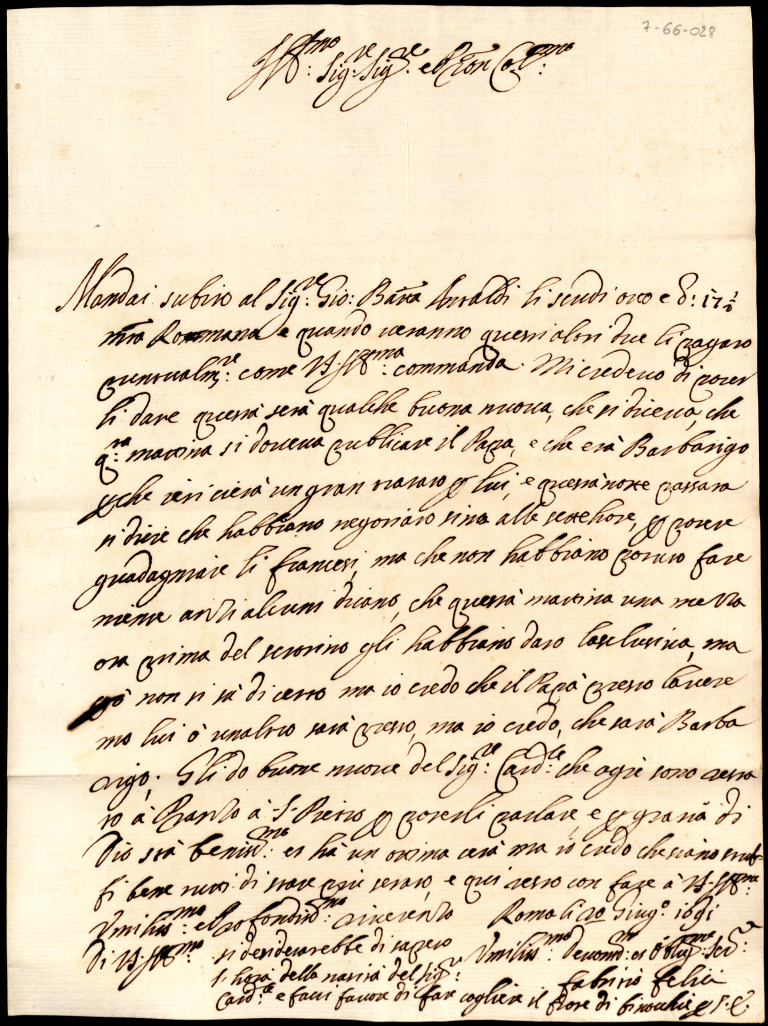 7-66-028
Ill.mo Sig.re Sig.re e Pron Col.mo
Mandai subito al Sig.re Gio: Batta Ansaldi li scudi otto e b: 17½
mta Romana e quando veranno quest'altri due li pagarò
puntualm.te come V.S. Ill.ma commanda. Mi credevo di poter
li dare questa sera qualche buona nuova, che si diceva, che
q.ta matina si doveva publicare il Papa, e che era Barbarigo
p che ieri c'era un gran trataro p lui, e questa notte passata
si dice che habbiano negotiato sina alle sette hore, p potere
guadagniare li francesi, ma che non habbiano potuto fare
niente anzi alcuni dicano, che questa matina una mezza
ora prima del scrotino gli habbiano dato l'asclusiva, ma
pò non si sà di certo ma io credo che il Papa presto l'avere
mo lui ò un altro sarà presto, ma io credo, che sarà Barba
rigo; Gli do buone nuove del Sig.re Card.le che ogi sono resta
to à Pranzo à S. Pietro p poterli parlare, e p gratia di
Dio stà beniss.mo et hà un otima cera ma io credo che siano stuf-
fi bene tutti di stare più serati, e qui resto con fare à V.S. Ill.ma
Umiliss.ma e Profondiss.ma riverenza Roma li 20 Giug.o 1691
Di V.S. Ill.ma si desidererebbe di sapere Umiliss.mo Devotiss.mo et Oblig.mo Ser.e
l'hora della nasità del Sig.re Fabritio Felici
Card.le e facci favore di far cogliere il fiore di finocchio p S. E.